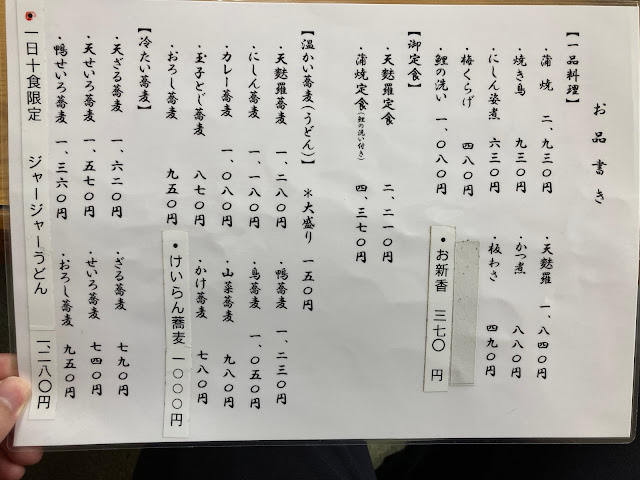 お品書き
【一品料理】
・蒲焼 二、九三〇円
・焼き鳥 九三〇円
・にしん姿煮 六三〇円
・梅くらげ 四八〇円
・鯉の洗い 一、〇八〇円
・天麩羅 一、八四〇円
・かつ煮 八八〇円
・板わさ 四九〇円
・お新香 三七〇円
【御定食】
・天麩羅定食 二、二一〇円
・蒲焼定食(鯉の洗い付き) 四、三七〇円
【温かい蕎麦(うどん)】 *大盛り 一五〇円
・天麩羅蕎麦 一、二八〇円
・にしん蕎麦 一、一八〇円
・カレー蕎麦 一、〇八〇円
・玉子とじ蕎麦 八七〇円
・おろし蕎麦 九五〇円
・鴨蕎麦 一、二三〇円
・鳥蕎麦 一、〇五〇円
・山菜蕎麦 九八〇円
・かけ蕎麦 七八〇円
・けいらん蕎麦 一〇〇〇円
【冷たい蕎麦】
・天ざる蕎麦 一、六二〇円
・天せいろ蕎麦 一、五七〇円
・鴨せいろ蕎麦 一、三六〇円
・ざる蕎麦 七九〇円
・せいろ蕎麦 七四〇円
・おろし蕎麦 九五〇円
・一日十食限定 ジャージャーうどん 一、二八〇円